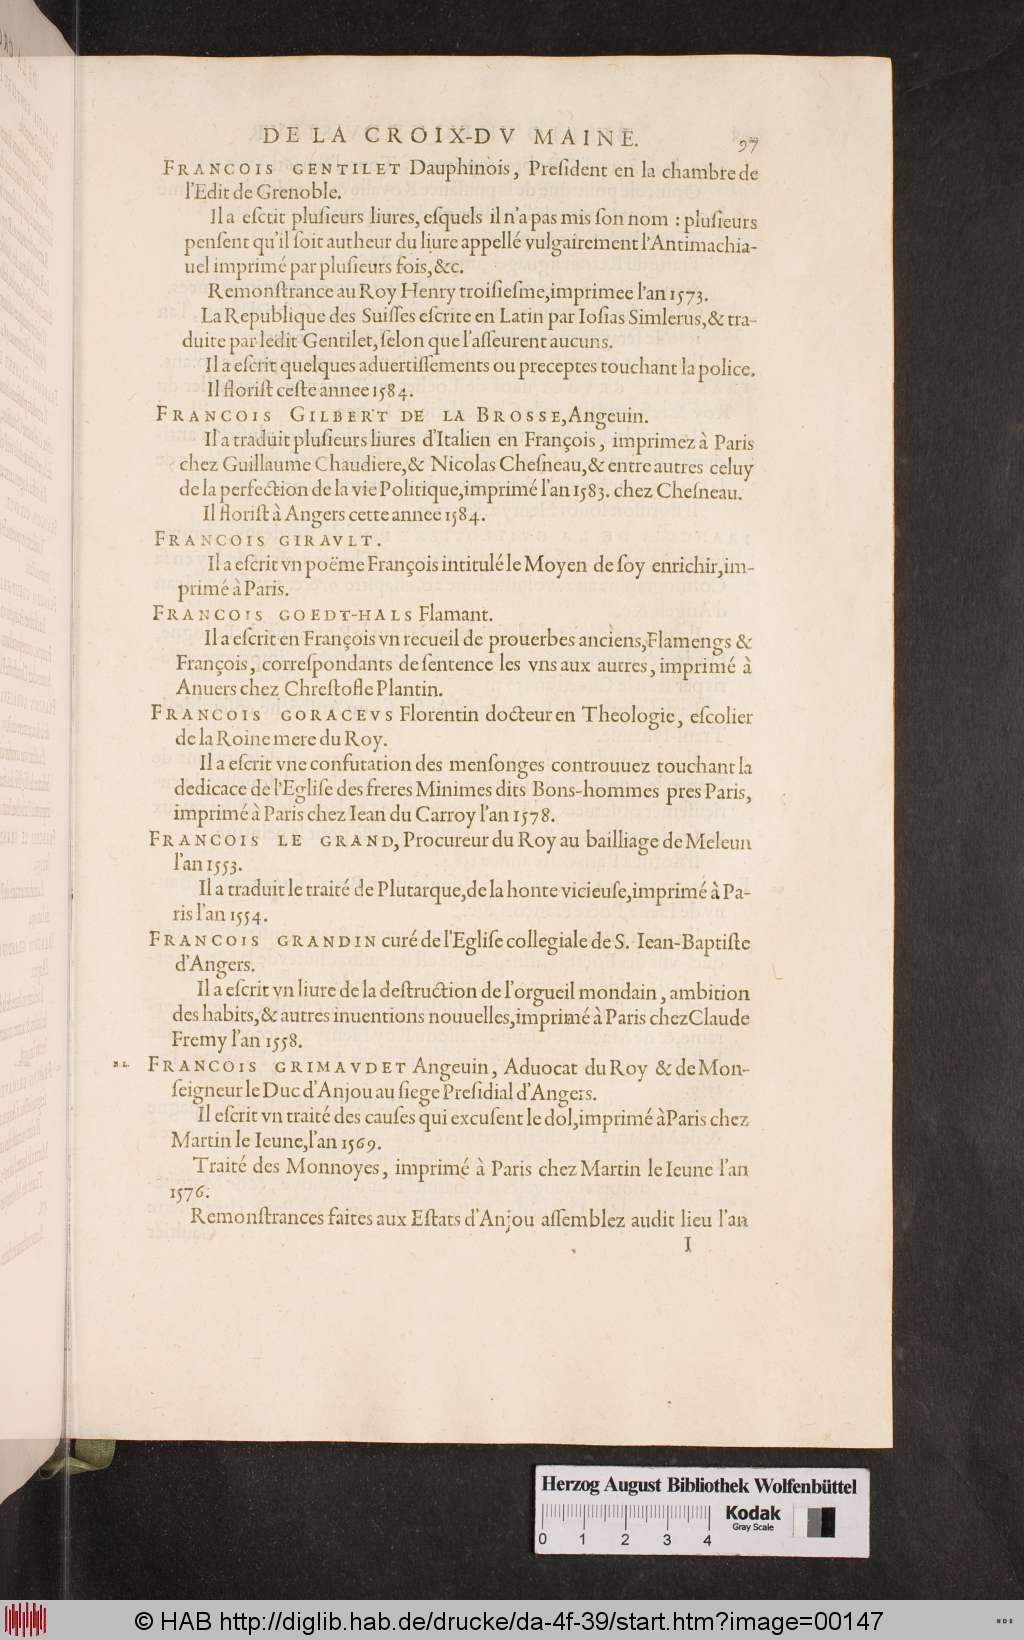 DE LA CROIX-DV MAINE. 97
FRANCOIS GENTILET Dauphinois, Preſident en la chambre de
l'Edit de Grenoble.
Il a eſctit pluſieurs liures, eſquels il n'a pas mis ſon nom : pluſieurs
penſent qu'il ſoit autheur du liure appellé vulgairement l'Antimachia-
uel imprimé par pluſieurs fois, &c.
Remonſtrance au Roy Henry troiſieſme, imprimee l'an 1573.
La Republique des Suiſſes eſcrite en Latin par Ioſias Simlerus, & tra-
duite par ledit Gentilet, ſelon que l'aſſeurent aucuns.
Il a eſcrit quelques aduertiſſements ou preceptes touchant la police.
Il floriſt ceſte annee 1584.
FRANCOIS GILBERT DE LA BROSSE, Angeuin.
Il a traduit pluſieurs liures d'Italien en François, imprimez à Paris
chez Guillaume Chaudiere, & Nicolas Cheſneau, & entre autres celuy
de la perfection de la vie Politique, imprimé l'an 1583. chez Cheſneau.
Il floriſt à Angers cette annee 1584.
FRANCOIS GIRAVLT.
Il a eſcrit vn poëme François intitulé le Moyen de ſoy enrichir, im-
primé à Paris.
FRANCOIS GOEDT-HALS Flamant.
Il a eſcrit en François vn recueil de prouerbes anciens, Flamengs &
François, correſpondants de ſentence les vns aux autres, imprimé à
Anuers chez Chreſtofle Plantin.
FRANCOIS GORACEVS Florentin docteur en Theologie, eſcolier
de la Roine mere du Roy.
Il a eſcrit vne confutation des menſonges controuuez touchant la
dedicace de l'Egliſe des freres Minimes dits Bons-hommes pres Paris,
imprimé à Paris chez Iean du Carroy l'an 1578.
FRANCOIS LE GRAND, Procureur du Roy au bailliage de Meleun
l'an 1553.
Il a traduit le traité de Plutarque, de la honte vicieuſe, imprimé à Pa-
ris l'an 1554.
FRANCOIS GRANDIN curé de l'Egliſe collegiale de S. Iean-Baptiſte
d'Angers.
Il a eſcrit vn liure de la deſtruction de l'orgueil mondain, ambition
des habits, & autres inuentions nouuelles, imprimé à Paris chez Claude
Fremy l'an 1558.
B. L. FRANCOIS GRIMAVDET Angeuin, Aduocat du Roy & de Mon-
ſeigneur le Duc d'Anjou au ſiege Preſidial d'Angers.
Il eſcrit vn traité des cauſes qui excuſent le dol, imprimé à Paris chez
Martin le Ieune, l'an 1569.
Traité des Monnoyes, imprimé à Paris chez Martin le Ieune l'an
1576.
Remonſtrances faites aux Eſtats d'Anjou aſſemblez audit lieu l'an
I
Herzog August Bibliothek Wolfenbüttel
Kodak
Gray Scale
0 1 2 3 4
© HAB http://diglib.hab.de/drucke/da-4f-39/start.htm?image=00147